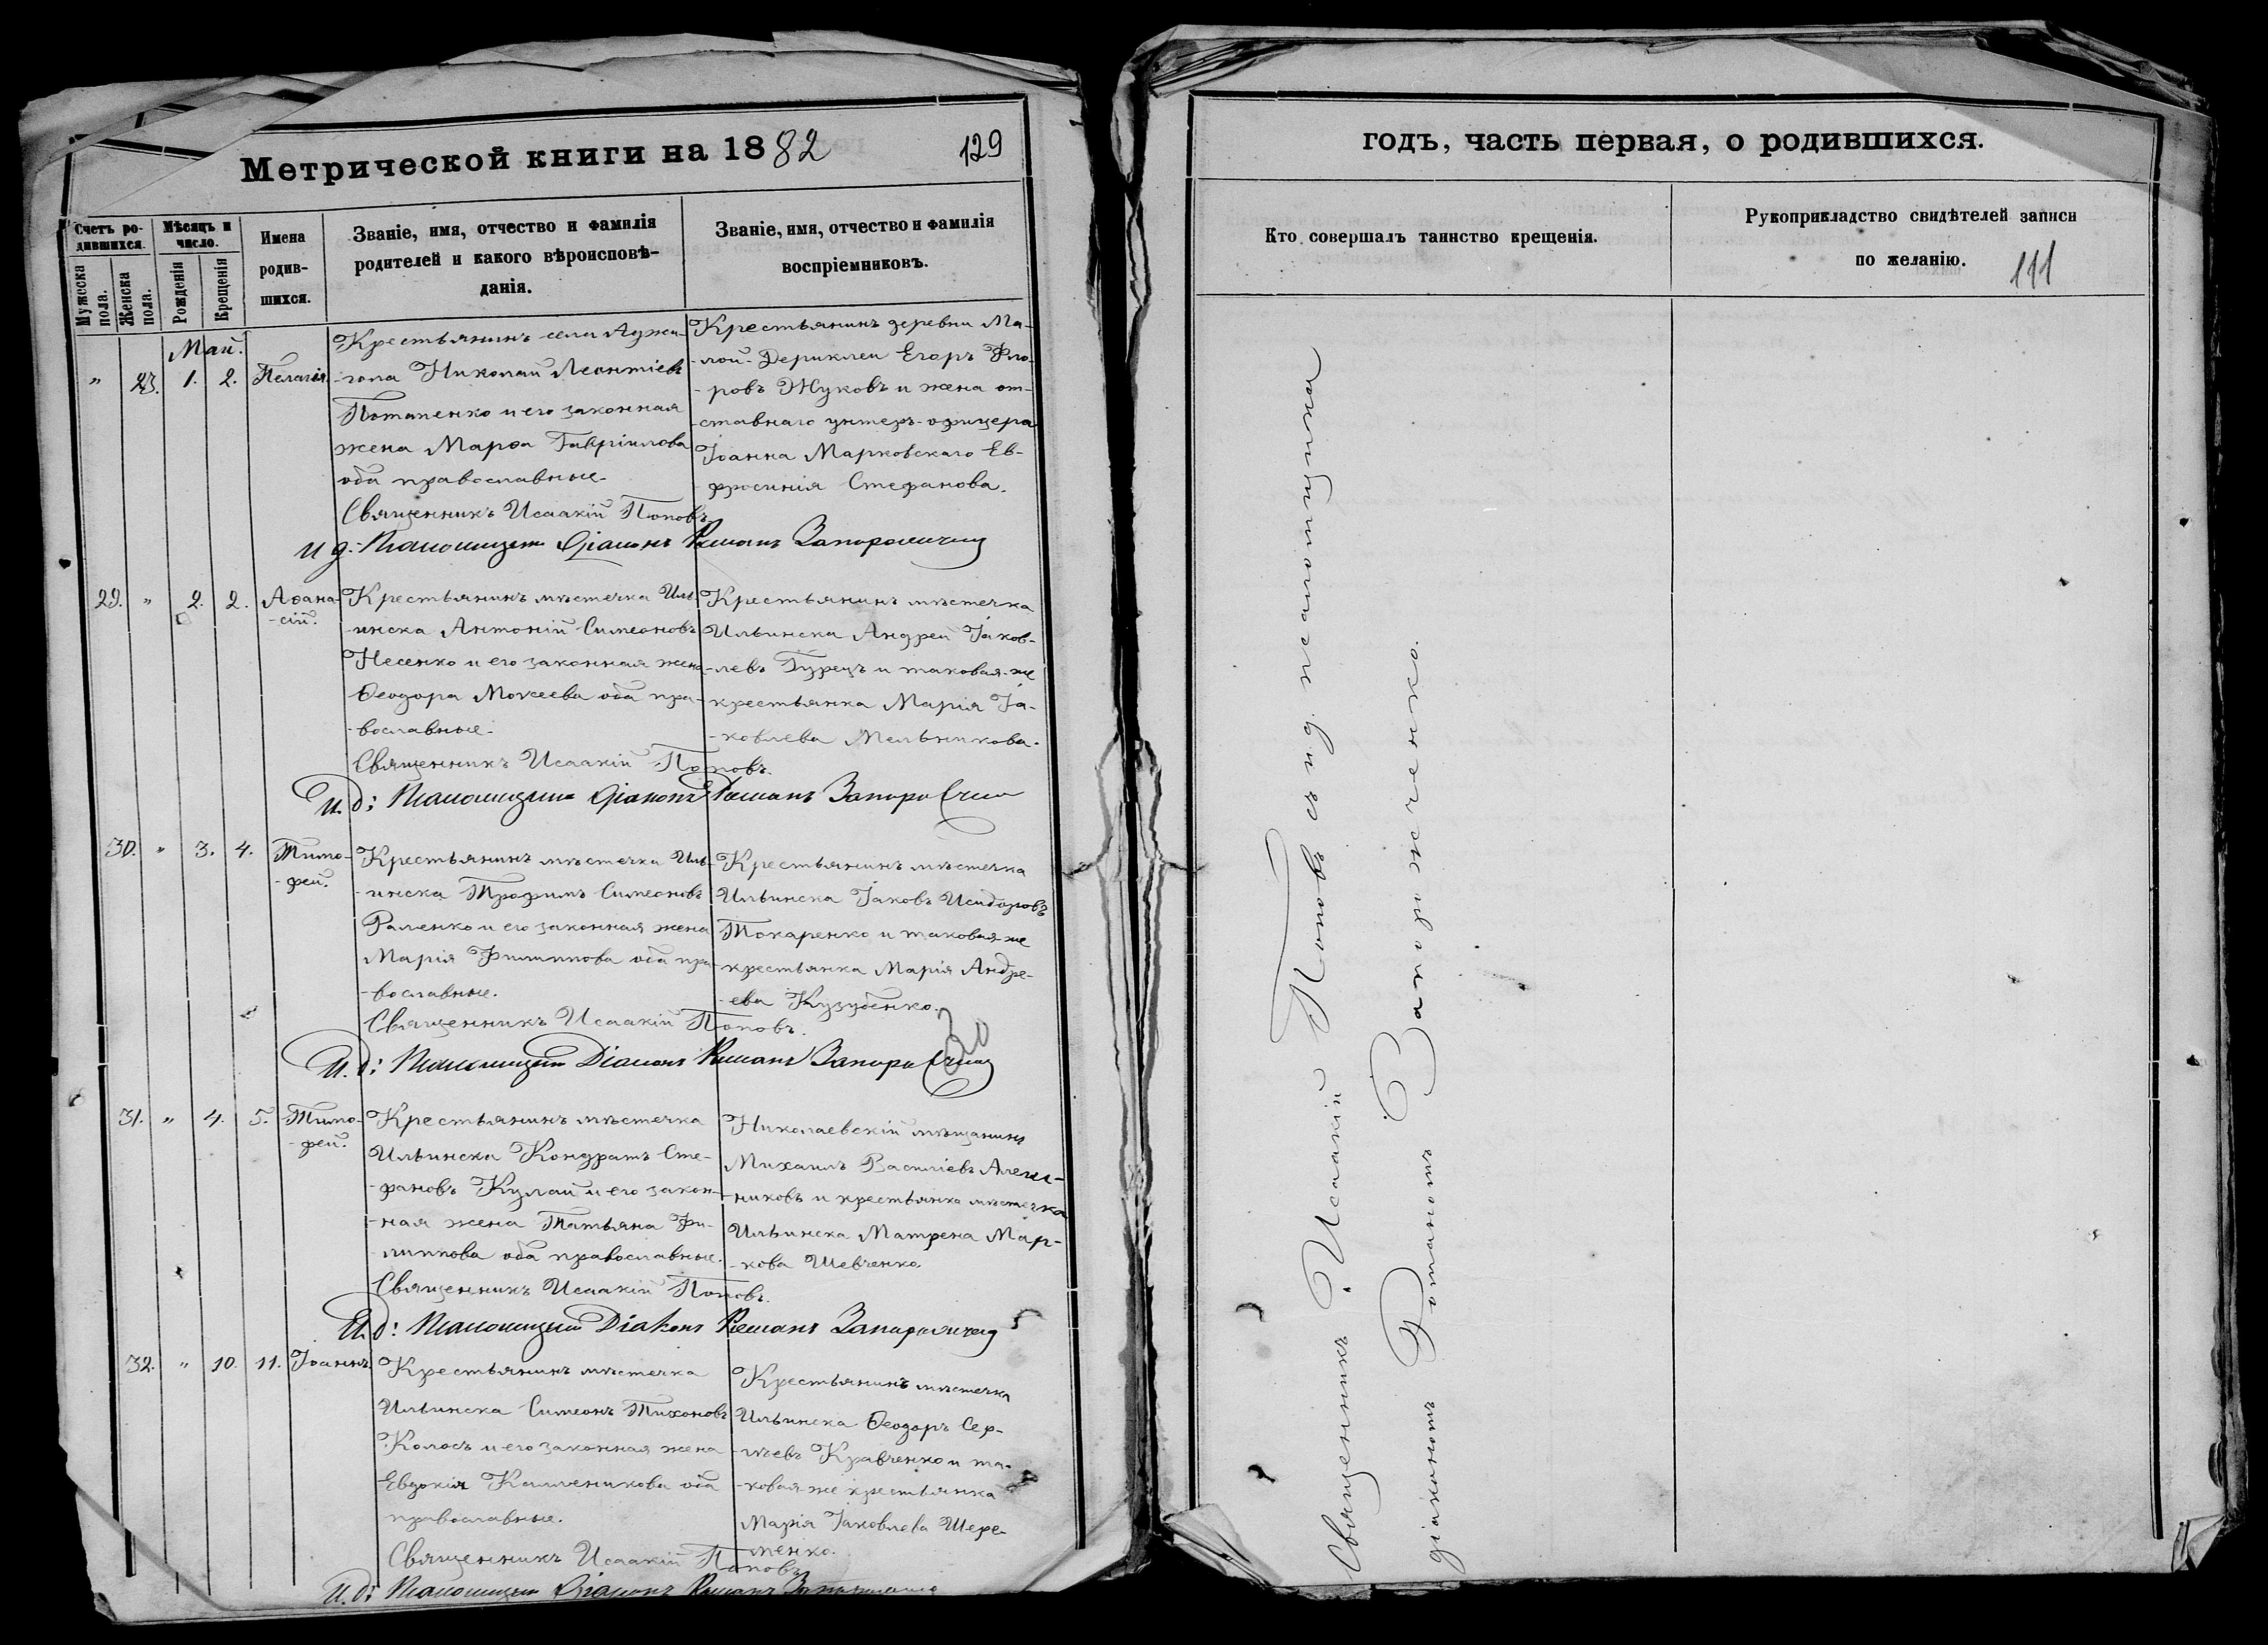 Метрической книги на 1882
129
Счетъ ро-
дившихся.
Мужеска пола.
Женска пола.
Мѣсяцъ и
число.
Рожденія
Крещенія
Имена
родив-
шихся.
Званіе, имя, отчество и фамилія
родителей и какого вѣроисповѣ-
данія.
Званіе, имя, отчество и фамилія
воспріемниковъ.
Май.
" 23. 1. 2. Пелагія
Крестьянинъ села Аджи-
-гола Николай Леонтіевъ
Потапенко и его законная
жена Марѳа Гавріилова
оба православные.
Священникъ Исаакій Поповъ.
Крестьянинъ деревни Ма-
-лой-Дериклеи Егоръ Фло-
-ровъ Жуковъ и жена от-
-ставнаго унтеръ-офицера
Іоанна Марковскаго Ев-
-фросинія Стефанова.
и д. Псаломщика Діаконъ Романъ Запороженко
29. " 2. 2. Аѳана-
-сій.
Крестьянинъ мѣстечка Иль-
-инска Антоній Симеоновъ
Несенко и его законная жена
Ѳеодора Моисеева оба пра-
-вославные.
Священникъ Исаакій Поповъ.
Крестьянинъ мѣстечка
Ильинска Андрей Іаков-
-левъ Гурецъ и таковая-же
крестьянка Марія Іа-
-ковлева Мельникова.
И. д: Псаломщика Діаконъ Романъ Запороженко
30. " 3. 4. Тимо-
-фей.
Крестьянинъ мѣстечка Иль-
-инска Трофимъ Симеоновъ
Раленко и его законная жена
Марія Филиппова оба пра-
-вославные.
Священникъ Исаакій Поповъ.
Крестьянинъ мѣстечка
Ильинска Іаковъ Исидоровъ
Токаренко и таковая-же
крестьянка Марія Андре-
-ева Кузубенко.
30
И. д: Псаломщика Діаконъ Романъ Запороженко
31. " 4. 5. Тимо-
-фей.
Крестьянинъ мѣстечка
Ильинска Кондратъ Сте-
-фановъ Кулай и его закон-
-ная жена Татьяна Фи-
-липпова оба православные.
Священникъ Исаакій Поповъ.
Николаевскій мѣщанинъ
Михаилъ Василіевъ
-никовъ и крестьянка мѣстечка
Ильинска Матрена Мар-
-кова Шевченко.
И. д: Псаломщика Діаконъ Романъ Запороженко
32. " 10. 11. Іоаннъ
Крестьянинъ мѣстечка
Ильинска Симеонъ Тихоновъ
Колосъ и его законная жена
Евдокія Каллиникова оба
православные.
Священникъ Исаакій Поповъ
Крестьянинъ мѣстечка
Ильинска Ѳеодоръ Сер-
-гѣевъ Кравченко и та-
-ковая-же крестьянка
Марія Іаковлева Шере-
-менко.
И. д: Псаломщика Діаконъ Романъ Запороженко
годъ, часть первая, о родившихся.
Кто совершалъ таинство крещенія.
Рукоприкладство свидѣтелей записи
по желанію.
111
Священникъ Исаакій Поповъ съ и д. псаломщика
діакономъ Романомъ Запороженко.